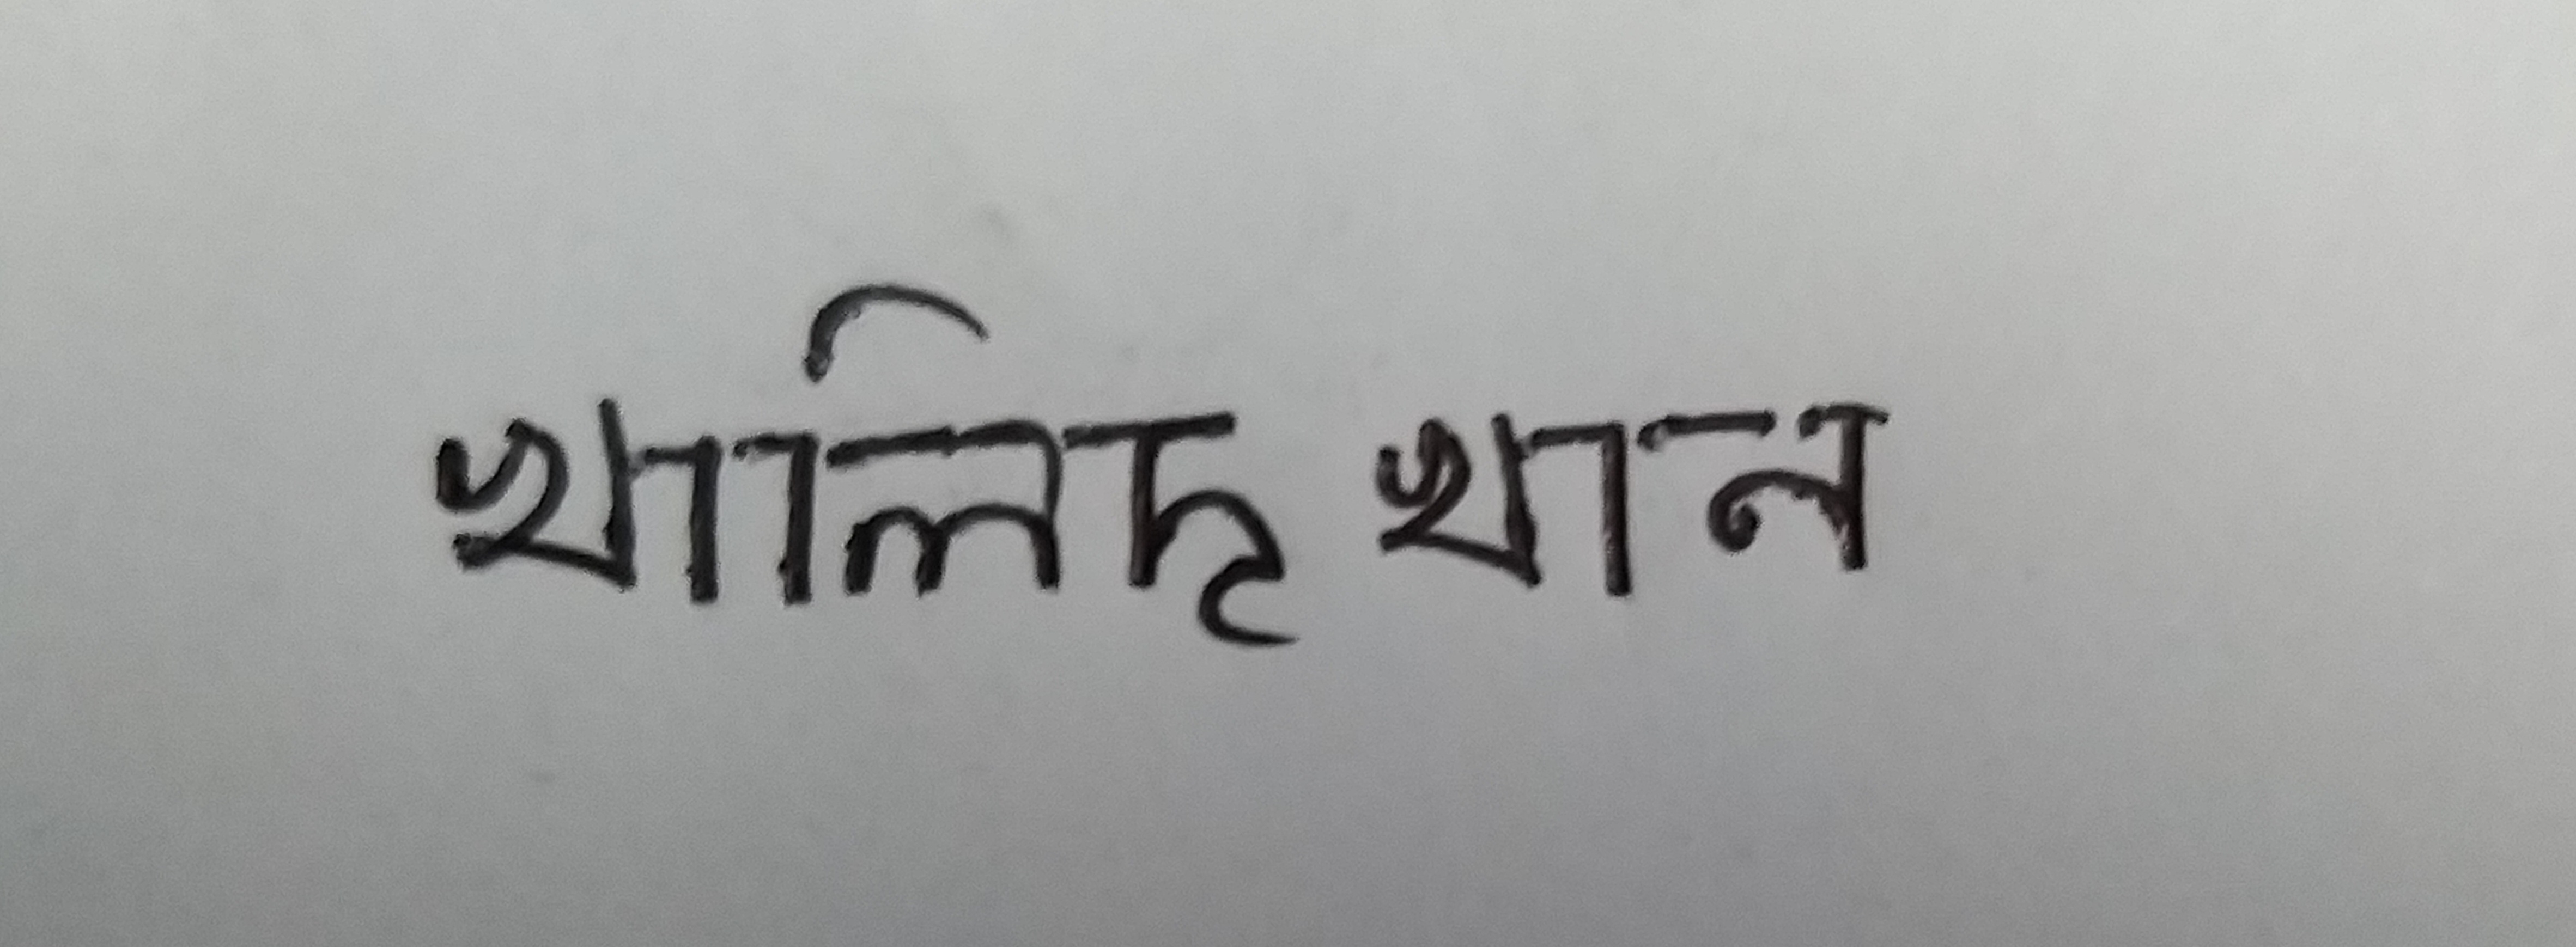 খালিদ খান